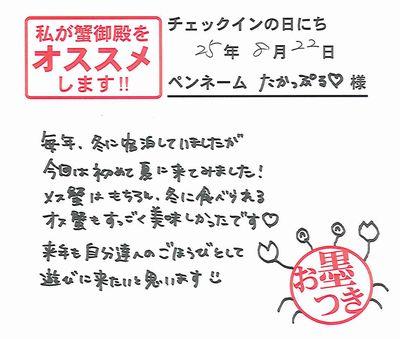 私が蟹御殿を
オススメ
します!!
チェックインの日にち
25年 8月 22日
ペンネーム たかっぷる♡ 様
毎年、冬に宿泊していましたが
今回は初めて夏に来てみました!
メス蟹はもちろん、冬に食べられる
オス蟹もすっごく美味しかったです♡
来年も自分達へのごほうびとして
遊びに来たいと思います
お墨つき